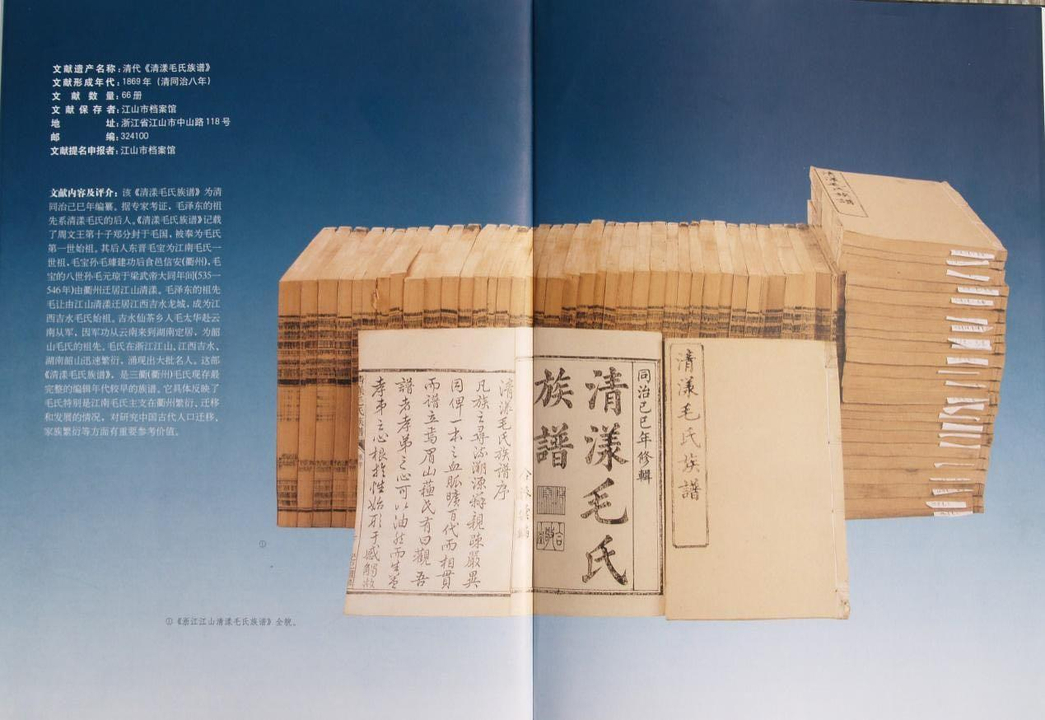 文献遗产名称：清代《清漾毛氏族谱》
文献形成年代：1869年（清同治八年）
文献数量：66册
文献保存者：江山市档案馆
地址：浙江省江山市中山路118号
邮编：324100
文献提名申报者：江山市档案馆
文献内容及评介：该《清漾毛氏族谱》为清
同治己巳年编纂。据专家考证，毛泽东的祖
先系清漾毛氏的后人。《清漾毛氏族谱》记载
了周文王第十子郑分封于毛国，被奉为毛氏
第一世始祖。其后人东晋毛宝为江南毛氏一
世祖，毛宝孙毛璩建功后食邑信安(衢州)，毛
宝的八世孙毛元琼于梁武帝大同年间(535—
546年)由衢州迁居江山清漾。毛泽东的祖先
毛让由江山清漾迁居江西吉水龙城，成为江
西吉水毛氏始祖。吉水仙茶乡人毛太华赴云
南从军，因军功从云南来到湖南定居，为韶
山毛氏的祖先。毛氏在浙江江山、江西吉水、
湖南韶山迅速繁衍，涌现出大批名人。这部
《清漾毛氏族谱》，是三衢(衢州)毛氏现存最
完整的编辑年代较早的族谱。它具体反映了
毛氏特别是江南毛氏主支在衢州繁衍、迁移
和发展的情况，对研究中国古代人口迁移、
家族繁衍等方面有重要参考价值。
①
①《浙江江山清漾毛氏族谱》全貌。
清漾毛氏族譜
清漾毛氏族譜
同治己巳年修輯
清漾毛氏
族譜
清漾毛氏族譜序
凡族之尋流溯源辨親疎嚴異
同俾一本之血脈曠百代而相貫
而譜立焉眉山蘇氏有曰觀吾
譜者孝弟之心可以油然而生蓋
孝弟之心根於性始形于感觸故